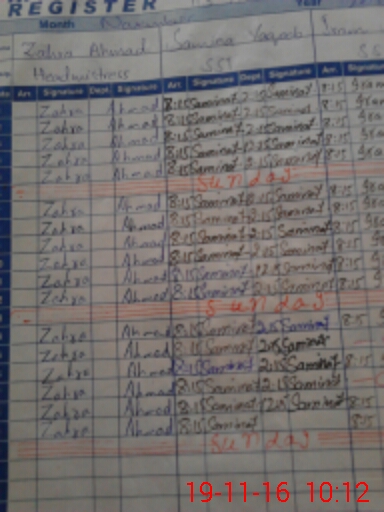 REGISTER
Month November Year
Zahra Ahmad Samina Yaqoob Iram
Headmistress SST SS
Arr. Signature Dept. Signature Arr. Signature Dept. Signature Arr. Signature
Zahra Ahmad 8:15 Saminat 2:15 Saminat 8:15
Zahra Ahmad 8:15 Saminat 2:15 Saminat 8:15
Zahra Ahmad 8:15 Saminat 2:15 Saminat 8:15
Zahra Ahmad 8:15 Saminat 12:15 Saminat 8:15
Zahra Ahmad 8:15 Saminat 2:15 Saminat 8:15
Sunday
Zahra Ahmad 8:15 Saminat 2:15 Saminat 8:15
Zahra Ahmad 8:15 Saminat 2:15 Saminat 8:15
Zahra Ahmad 8:15 Saminat 2:15 Saminat 8:15
Zahra Ahmad 8:15 Saminat 2:15 Saminat 8:15
Zahra Ahmad 8:15 Saminat 12:15 Saminat 8:15
Zahra Ahmad 8:15 Saminat 2:15 Saminat 8:15
Sunday
Zahra Ahmad 8:15 Saminat 2:15 Saminat 8:15
Zahra Ahmad 8:15 Saminat 2:15 Saminat
Zahra Ahmad 8:15 Saminat 2:15 Saminat 8:15
Zahra Ahmad 8:15 Saminat 2:15 Saminat
Zahra Ahmad 8:15 Saminat 12:15 Saminat 8:15
Zahra Ahmad 8:15 Saminat 8:15
Sunday
19-11-16 10:12